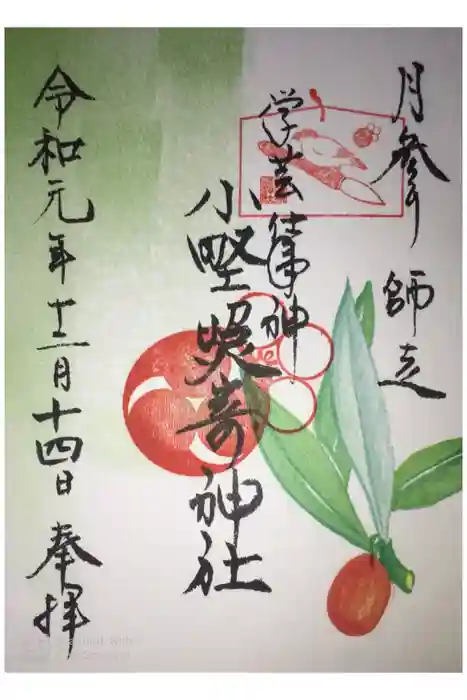 月参 師走
学芸精神
小野照崎神社
令和元年十二月十四日 奉拝